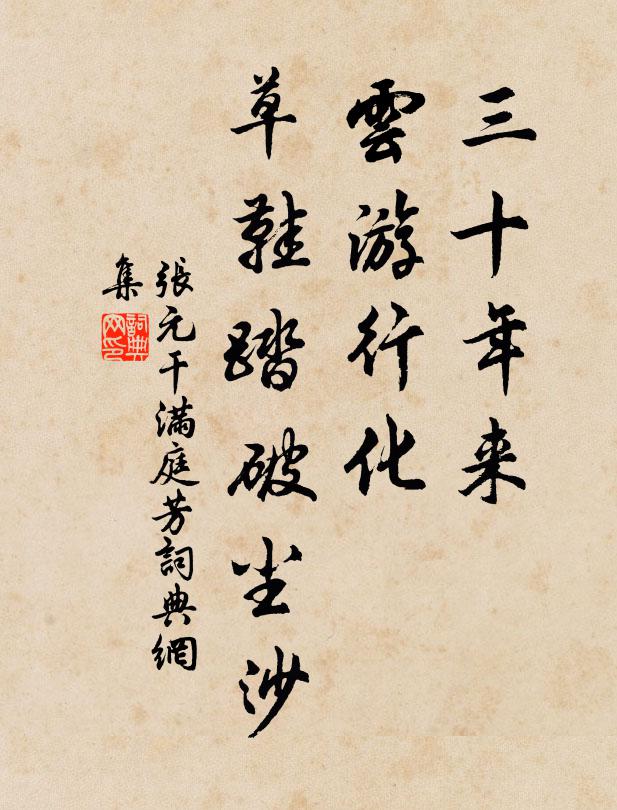 三十年来
雲游行化
草鞋踏破尘沙
張元干滿庭芳詞典網
集
詞典
网印